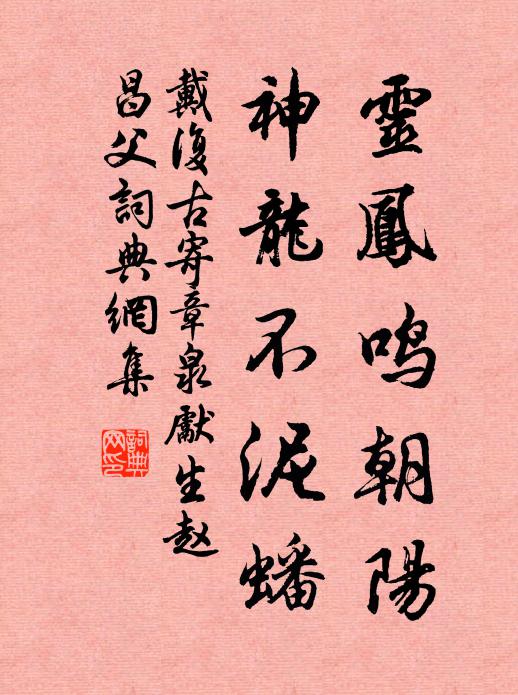 靈鳳鳴朝陽
神龍不泥蟠
戴復古寄章泉獻生赵
昌父詞典網集
詞典
网印